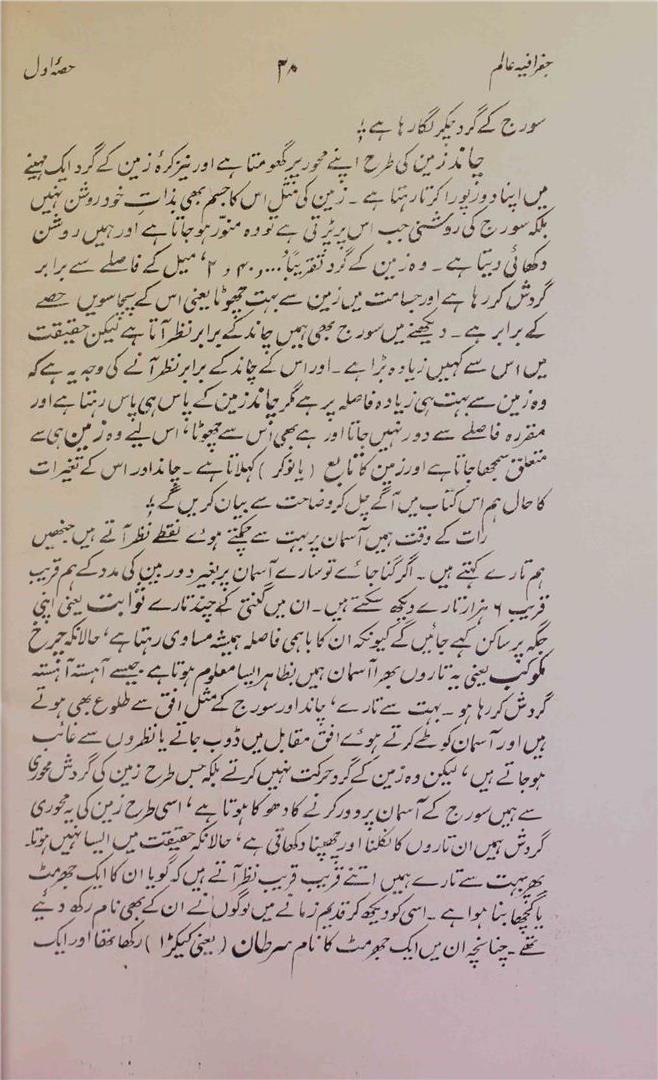 جغرافیہ عالم ۳۸ حصۂ اول
سورج کے گرد چکر لگا رہا ہے ؛
چاند زمین کی طرح اپنے محور پر گھومتا ہے اور نیز کرۂ زمین کے گرد ایک مہینے
میں اپنا دور پورا کرتا رہتا ہے ۔ زمین کی مثل اس کا جسم بھی بذاتِ خود روشن نہیں
بلکہ سورج کی روشنی جب اس پر پڑتی ہے تو وہ منور ہو جاتا ہے اور ہمیں روشن
دکھائی دیتا ہے ۔ وہ زمین کے گرد تقریباً ۲,۴۰,۰۰۰ میل کے فاصلے سے برابر
گردش کر رہا ہے اور جسامت میں زمین سے بہت چھوٹا یعنی اس کے پچاسویں حصے
کے برابر ہے ۔ دیکھنے میں سورج بھی ہمیں چاند کے برابر نظر آتا ہے لیکن حقیقت
میں اس سے کہیں زیادہ بڑا ہے ۔ اور اس کے چاند کے برابر نظر آنے کی وجہ یہ ہے کہ
وہ زمین سے بہت ہی زیادہ فاصلہ پر ہے مگر چاند زمین کے پاس ہی پاس رہتا ہے اور
مقررہ فاصلے سے دور نہیں جاتا اور ہے بھی اس سے چھوٹا، اس لیے وہ زمین ہی سے
متعلق سمجھا جاتا ہے اور زمین کا تابع (یا نوکر) کہلاتا ہے ۔ چاند اور اس کے تغیرات
کا حال ہم اس کتاب میں آگے چل کر وضاحت سے بیان کریں گے ؛
رات کے وقت ہمیں آسمان پر بہت سے چمکتے ہوے نقطے نظر آتے ہیں جنھیں
ہم تارے کہتے ہیں ۔ اگر گنا جاے تو سارے آسمان پر بغیر دوربین کی مدد کے ہم قریب
قریب ۶ ہزار تارے دیکھ سکتے ہیں ۔ ان میں گنتی کے چند تارے ثوابت یعنی اپنی
جگہ پر ساکن کہے جائیں گے کیونکہ ان کا باہمی فاصلہ ہمیشہ مساوی رہتا ہے، حالانکہ چرخ
مکوکب یعنی یہ تاروں بھرا آسمان ہمیں بظاہر ایسا معلوم ہوتا ہے جیسے آہستہ آہستہ
گردش کر رہا ہو ۔ بہت سے تارے، چاند اور سورج کے مثل افق سے طلوع بھی ہوتے
ہیں اور آسمان کو طے کرتے ہوے افق مقابل میں ڈوب جاتے یا نظروں سے غائب
ہو جاتے ہیں، لیکن وہ زمین کے گرد حرکت نہیں کرتے بلکہ جس طرح زمین کی گردش محوری
سے ہمیں سورج کے آسمان پر دور کرنے کا دھوکا ہوتا ہے، اسی طرح زمین کی یہ محوری
گردش ہمیں ان تاروں کا نکلنا اور چھپنا دکھاتی ہے، حالانکہ حقیقت میں ایسا نہیں ہوتا۔
پھر بہت سے تارے ہمیں اتنے قریب قریب نظر آتے ہیں کہ گویا ان کا ایک جھرمٹ
یا گچھا بنا ہوا ہے ۔ اسی کو دیکھ کر قدیم زمانے میں لوگوں نے ان کے بھی نام رکھ دئیے
تھے ۔ چنانچہ ان میں ایک جھرمٹ کا نام سرطان (یعنی کیکڑا) رکھا تھا اور ایک